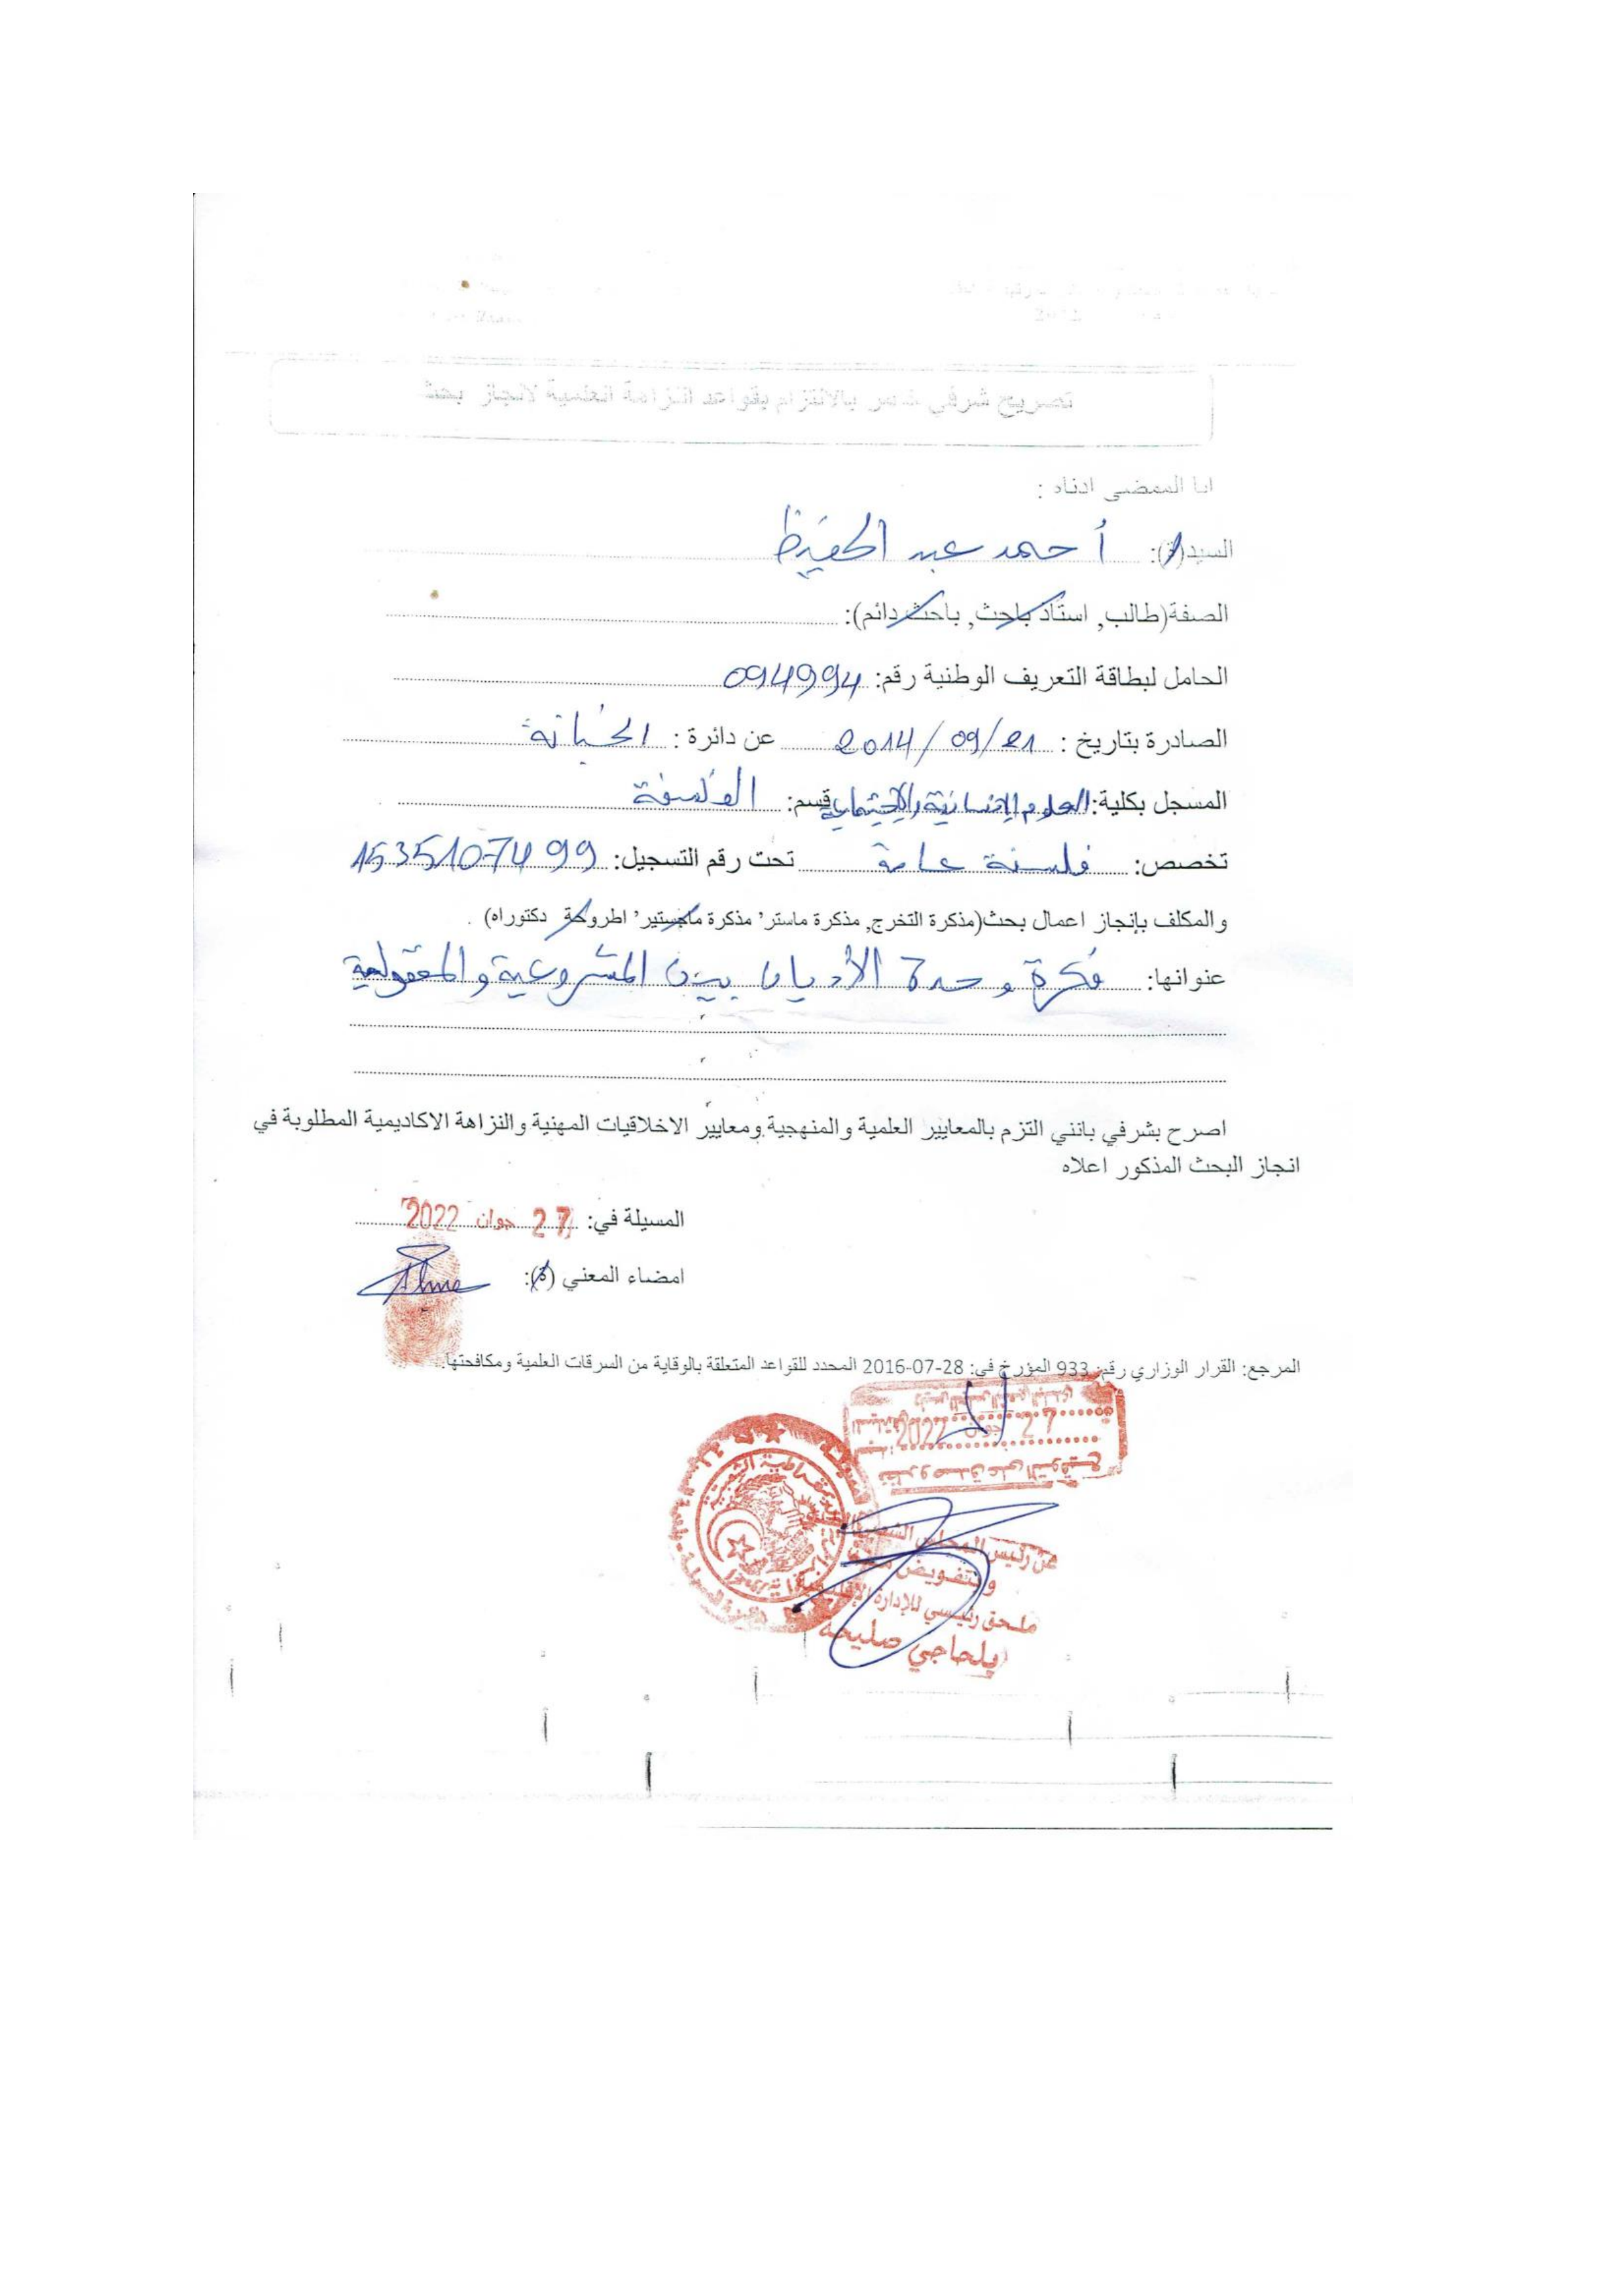 تصريح شرفي خاص بالالتزام بقواعد النزاهة العلمية لانجاز بحث
انا الممضى ادناه :
السيد(ة): أحمد عبد الحفيظ
الصفة(طالب, استاذ باحث, باحث دائم):
الحامل لبطاقة التعريف الوطنية رقم: 094994
الصادرة بتاريخ : 2014/09/21 عن دائرة :
المسجل بكلية: العلوم الإنسانية والاجتماعية قسم: الفلسفة
تخصص: فلسفة عامة تحت رقم التسجيل: 1535107499
والمكلف بإنجاز اعمال بحث(مذكرة التخرج, مذكرة ماستر' مذكرة ماجستير' اطروحة دكتوراه) .
عنوانها: فكرة وحدة الأديان بين المشروعية والمعقولية
اصرح بشرفي بانني التزم بالمعايير العلمية والمنهجية ومعايير الاخلاقيات المهنية والنزاهة الاكاديمية المطلوبة في
انجاز البحث المذكور اعلاه
المسيلة في: 27 جوان 2022
امضاء المعني (ة):
المرجع: القرار الوزاري رقم 933 المؤرخ في: 28-07-2016 المحدد للقواعد المتعلقة بالوقاية من السرقات العلمية ومكافحتها.
عن رئيس المجلس الشعبي
وبتفويض منه
ملحق رئيسي للإدارة الإقليمية
بلحاجي صليحة